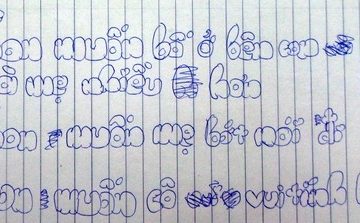 con muốn bố ở bên con
mẹ nhiều hơn
con muốn mẹ bớt nói
con muốn có vui tính